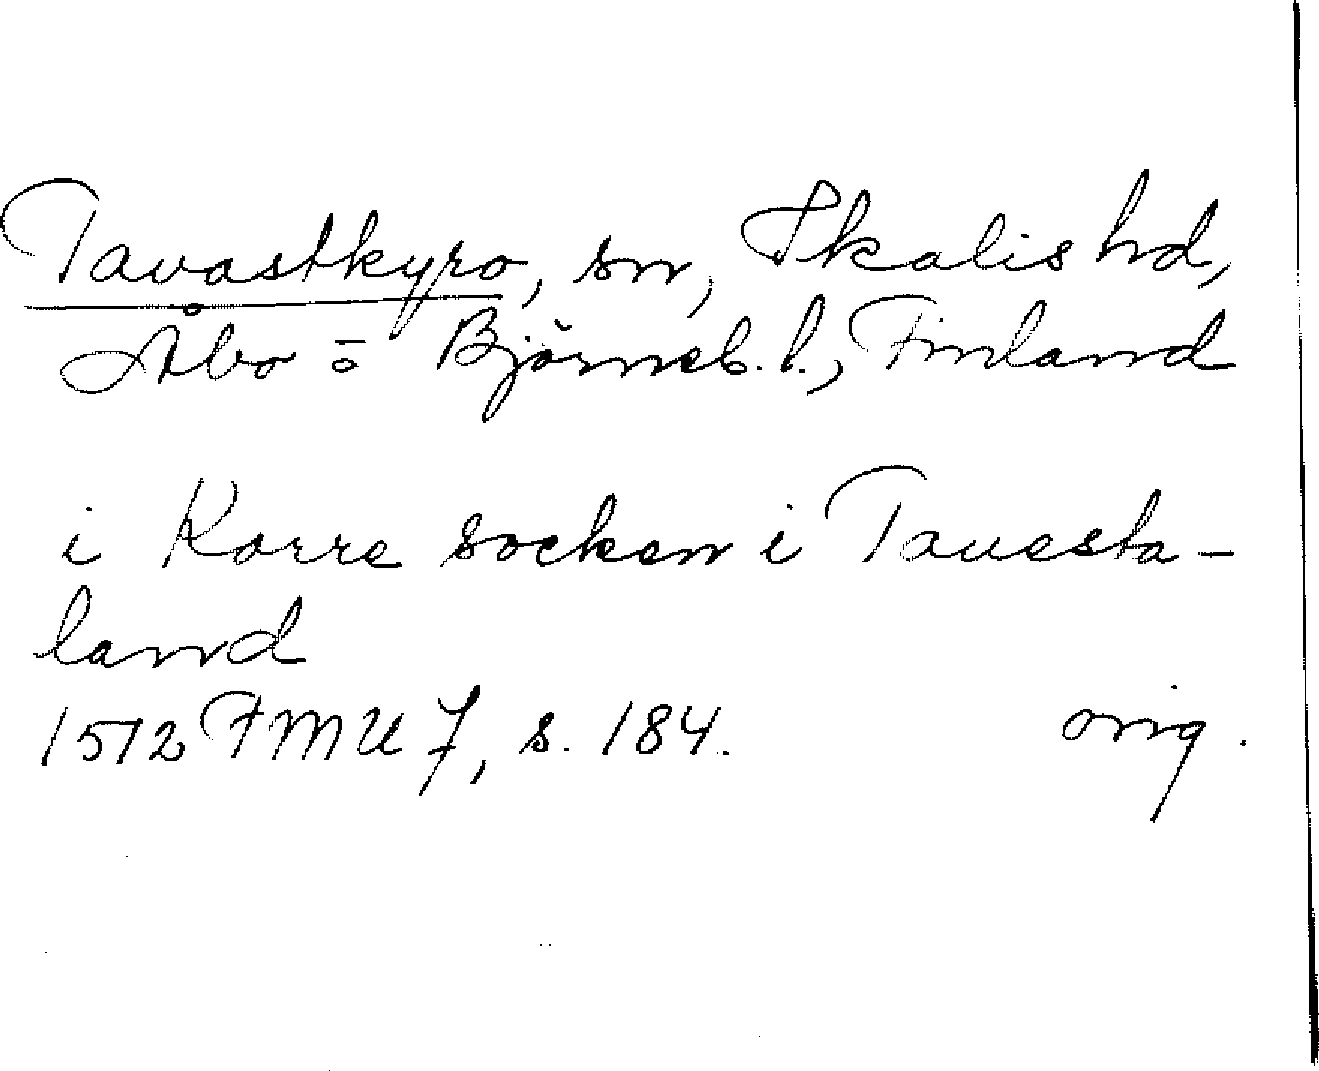 Tavastkyro, sn, Ikalis hd,
Åbo o Björneb. l., Finland
i Korre socken i Tauesta-
land
1512 FMU 7, s. 184. orig.